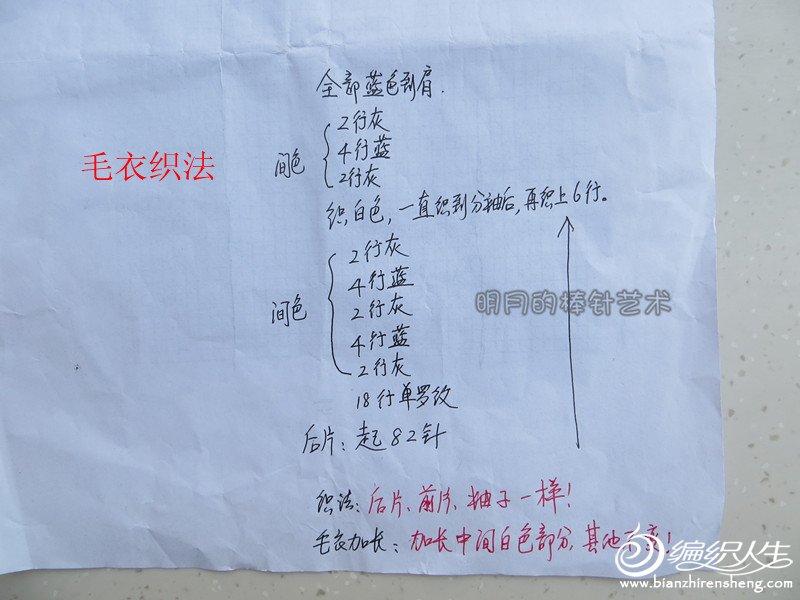 全部蓝色到肩.
毛衣织法
间色
2行灰
4行蓝
2行灰
织白色,一直织到分袖后,再织上6行。
间色
2行灰
4行蓝
2行灰
4行蓝
2行灰
明月的棒针艺术
18行单罗纹
后片:起82针
织法:后片、前片、袖子一样!
毛衣加长:加长中间白色部分,其他不变!
编织人生
www.bianzhirensheng.com